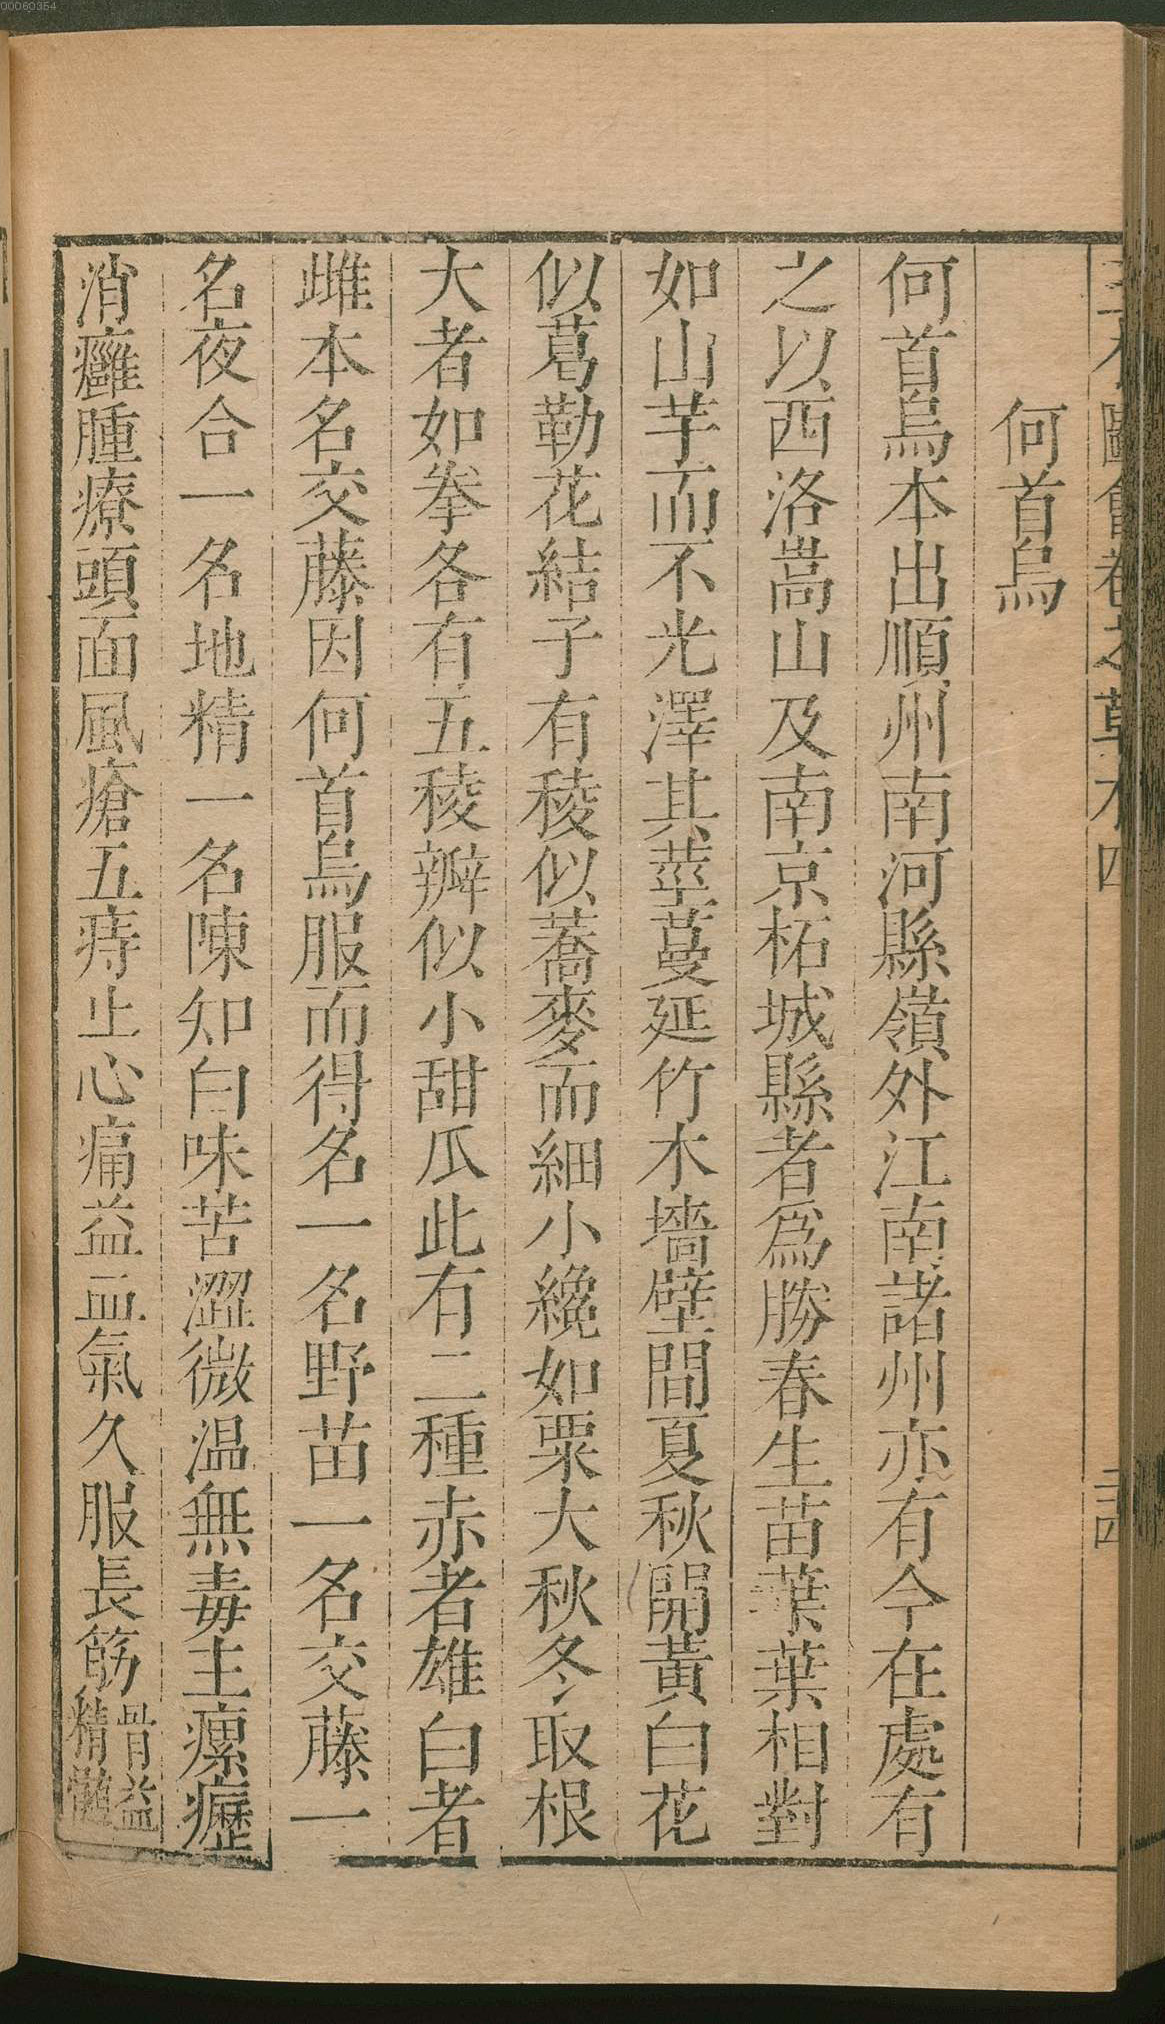 00060354
三才圖會卷之草木四
三四
何首烏
何首烏本出順州南河縣嶺外江南諸州亦有今在處有
之以西洛嵩山及南京柘城縣者爲勝春生苗葉葉相對
如山芋而不光澤其莖蔓延竹木墻壁間夏秋開黃白花
似葛勒花結子有稜似蕎麥而細小纔如粟大秋冬取根
大者如拳各有五稜瓣似小甜瓜此有二種赤者雄白者
雌本名交藤因何首烏服而得名一名野苗一名交藤一
名夜合一名地精一名陳知白味苦澀微温無毒主瘰癧
消癰腫療頭面風瘡五痔止心痛益血氣久服長筋骨益
精髓